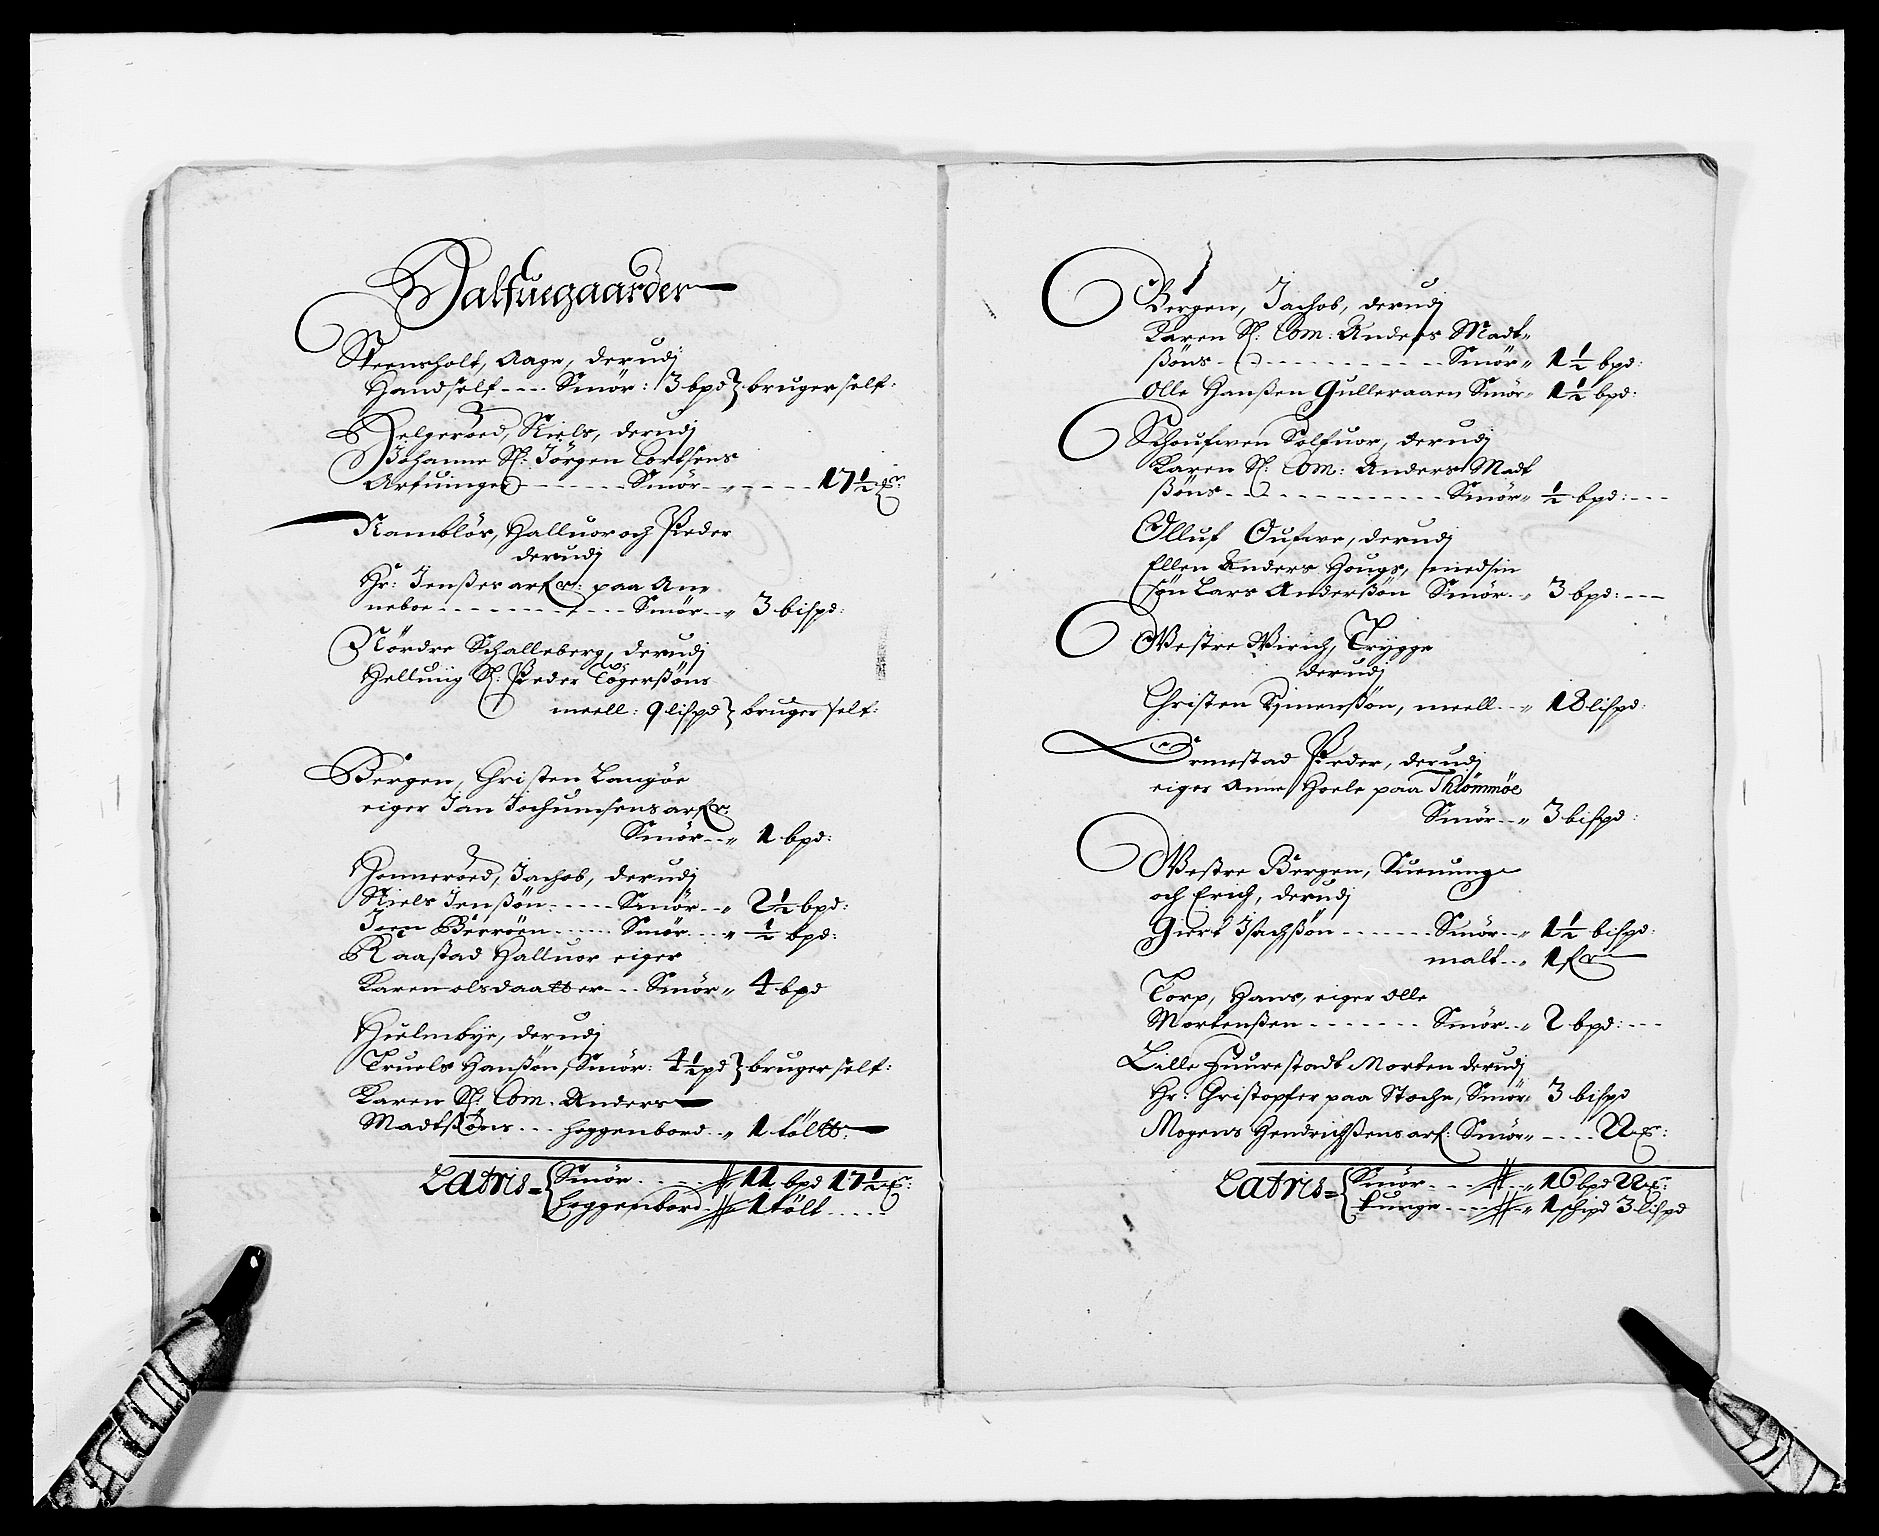 Halfuegaarder
Steensholt, Aage, derudj
Handself ---- Smör: 3 bpd } bruger self:
Helgeroed, Niels, derudj
Johanne Sl: Jörgen Corthsens
Arfuinger ------- Smör -„----- 17½ ℳr:
Ramblös, Halluor och Peder
derudj
Hr: Jenßes arfer: paa An¬
neboe ------------ Smör --„ 3 bispd:
Nördre Schalleberg, derudj
Hellwig Sl: Peder Tögerßöns
meell: 9 lispd } bruger self:
Bergen, Christen Langöe
eiger Jan Jochumsens arfr
Smör --„ 1 bpd:
Honneröed, Jachob, derudj
Niels Jenßön ----- Smör --„ 2½ bpd:
Jörn Beeröen ----- Smör ---„ ½ bpd:
Raastad Halluor eiger
Karen olsdaatter --- Smör „ 4 bpd
Hielmbye, derudj
Truels Hanßön, Smör: 4½ pd } bruger self:
Karen Sl: Com. Anders
Madtßöns --- Hoggenbord --„ 1 töltt:
Latris = { Smör ------ 11 bpd 17½ ℳr:
Hoggenbord -- 1 tölt -----
Bergen, Jachob, derudj
Karen Sl: Com: Anders Madt¬
ßöns ------------ Smör „ 1½ bpd:
Olle Hanßen Gulleraaen Smör „ 1½ bpd:
Schoufwen Solfuor, derudj
Karen Sl: Com: Anders Madt
ßöns ------------ Smör „ ½ bpd: ---
Olluf Oufwe, derudj
Ellen Anders Hougs, med sin
sön Lars Anderßön Smör --„ 3 bpd: ---
Westre Wirich, Trygge
derudj
Christen Simenßön, meell --„ 18 lispd:
Ormestad Peder, derudj
eiger Anne Hoele paa Thiömmöe
Smör --„ 3 bispd:
Westre Bergen, Suenung
och Erich, derudj
Giert Isachßön ------- Smör --„ 1½ bispd:
malt --„ 1 fr
Torp, Hans, eiger Olle
Mortenßen ------- Smör --„ 2 bpd: ---
Lille Fuurestadt Morten derudj
Hr: Christopfer paa Stoche, Smör „ 3 bispd
Mogens Hendrichßens arf: Smör „ ---- 22 ℳr:
Latris = { Smör ------„ 16 bpd 22 ℳr:
tunge ------„ 1 schipd 3 lispd